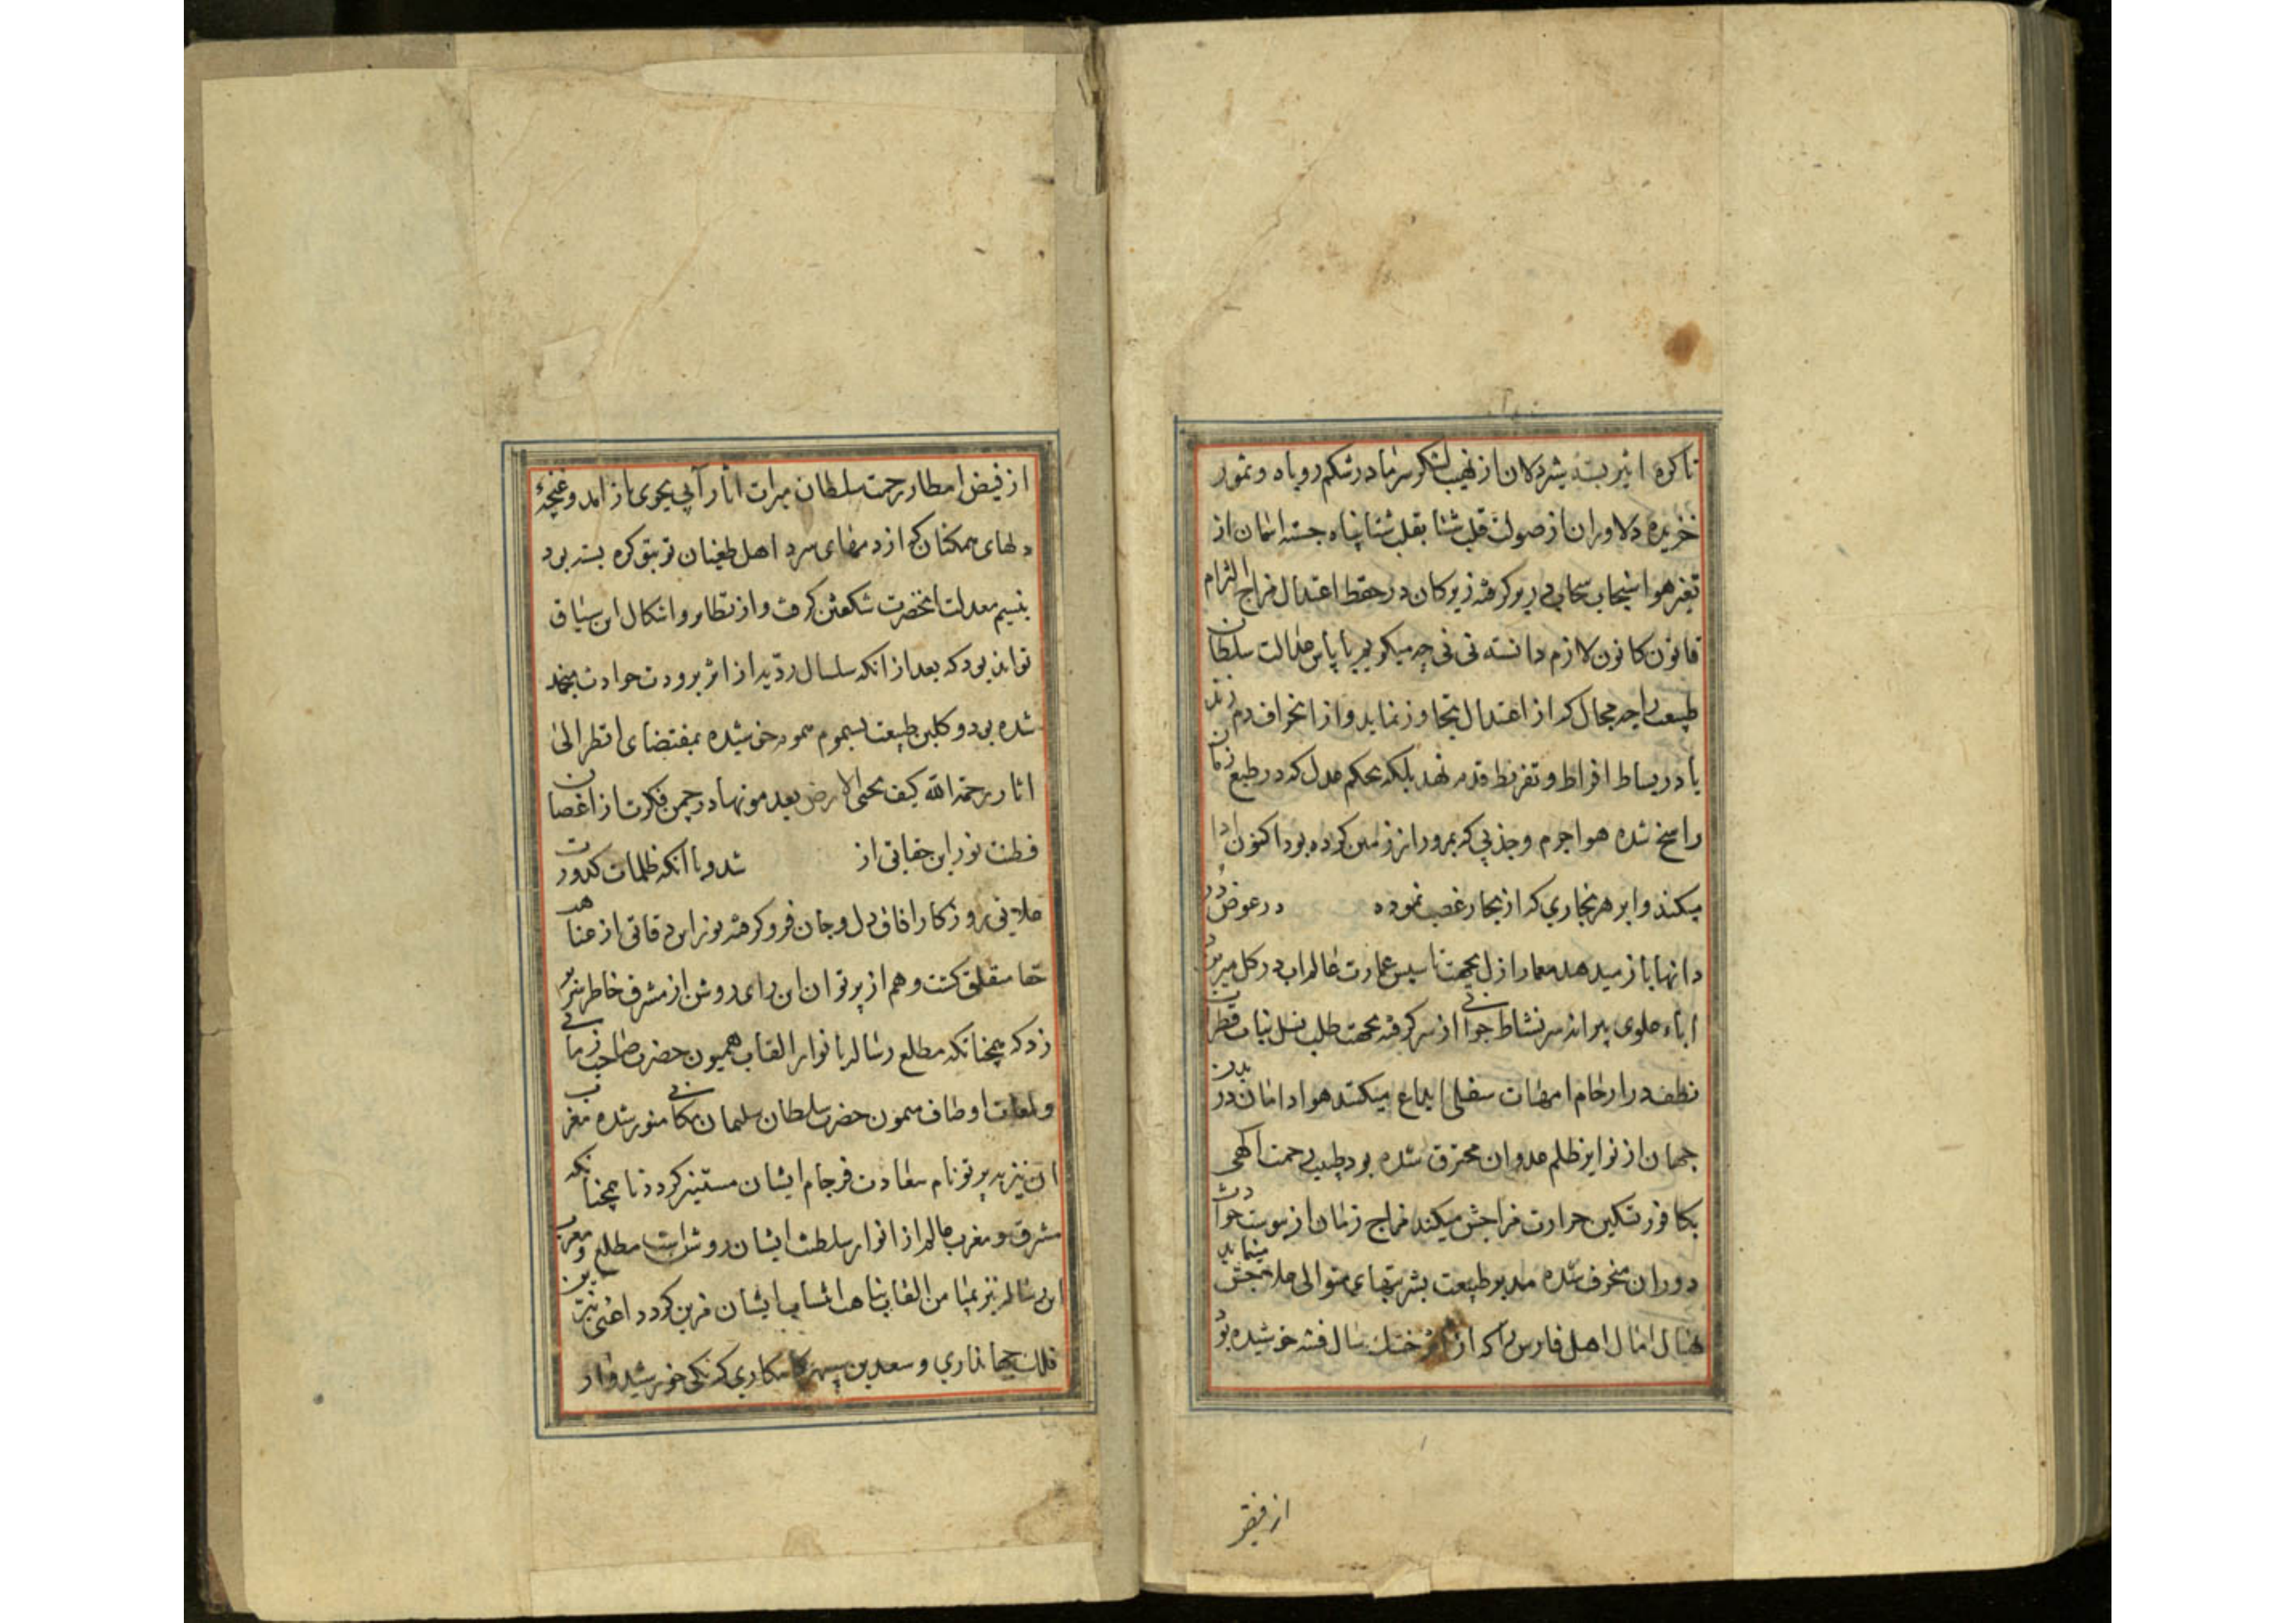 تا کره اثیر بسته شیردلان از نهیب لشکر سرما در شکم روباه و نمور
خزیده دلاوران از صولت قلب شتا بقلب شتا پناه جسته اتمان از
تغیر هوا سنجاب سحاب در بر کرفته زیرکان در حفظ اعتدال مزاج التزام
قانون کانون لازم دانسته نی نی چه میکویم با پاس عدالت سلطان
طبیعت را چه مجال که از اعتدال تجاوز نماید و از انحراف دم زند
یا در بساط افراط و تفریط قدم نهد بلکه بحکم عدل که در طبع زمان
راسخ شده هوا جرم و جذبی که بمرور از زمین کرده بود اکنون ادا
میکند و ابر هر بخاری که از بحار غصب نموده در عوض در
دانها باز میدهد معمار ازل بجهت تاسیس عمارت عالم اب در کل میریزد
اباء علوی پیرانه سر نشاط جوانی از سر کرفته بجهت طلب نسل نبات قطرات
نطفه در ارحام امهات سفلی ایداع میکنند هوا را امان
جهان از نوایر ظلم عدوان محترق شده بود طبیب رحمت الهی
بکافور تسکین حرارت مزاجش میکند مزاج زمان از یبوست حوادث
دوران منحرف شده مدبر طبیعت بشربتهای متوالی علاجش مینماید
نهال امال اهل فارس را که از اثر خشک سال فتنه خوشیده بود
از فیض
از فیض امطار رحمت سلطان میراث اثار آبی بجوی باز امد و غنچهٔ
دلهای همکنان که از دمهای سرد اهل طغیان تو بتو کره بسته بود
بنسیم معدلت انحضرت شکفتن کرفت و از نظایر و اشکال این سیاق
تواند بود که بعد از انکه سلسال از اثر برودت حوادث منجمد
شده بود و کلبن طبیعت بسموم هموم خوشیده بمقتضای انظر الی
اثار رحمة الله کیف یحیی الارض بعد موتها در چمن فکرت از اغصان
فطنت نور این حقایق از شد و با انکه ظلمات کدورت
علایق روزکار افاق دل و جان فرو کرفته نور این دقایق از
متعلق کشت و هم از پرتو ان این رای روشن از مشرق خاطر سر
زد که همچنانکه مطلع رساله بانوار القاب همیون حضرت صاحب زمانی
و لمعات اوصاف میمون حضرت سلطان سلیمان مکانی منور شده مغرب
ان نیز به پرتو نام سعادت فرجام ایشان مستنیر کردد تا همچنانکه
مشرق و مغرب عالم از انوار سلطنت ایشان روشن است مطلع و مغرب
این رساله نیز بمیامن القاب ایشان مزین کردد اعنی نیرین
فلک جهانداری و سعدین سپهر کامکاری که یکی خورشیدوار